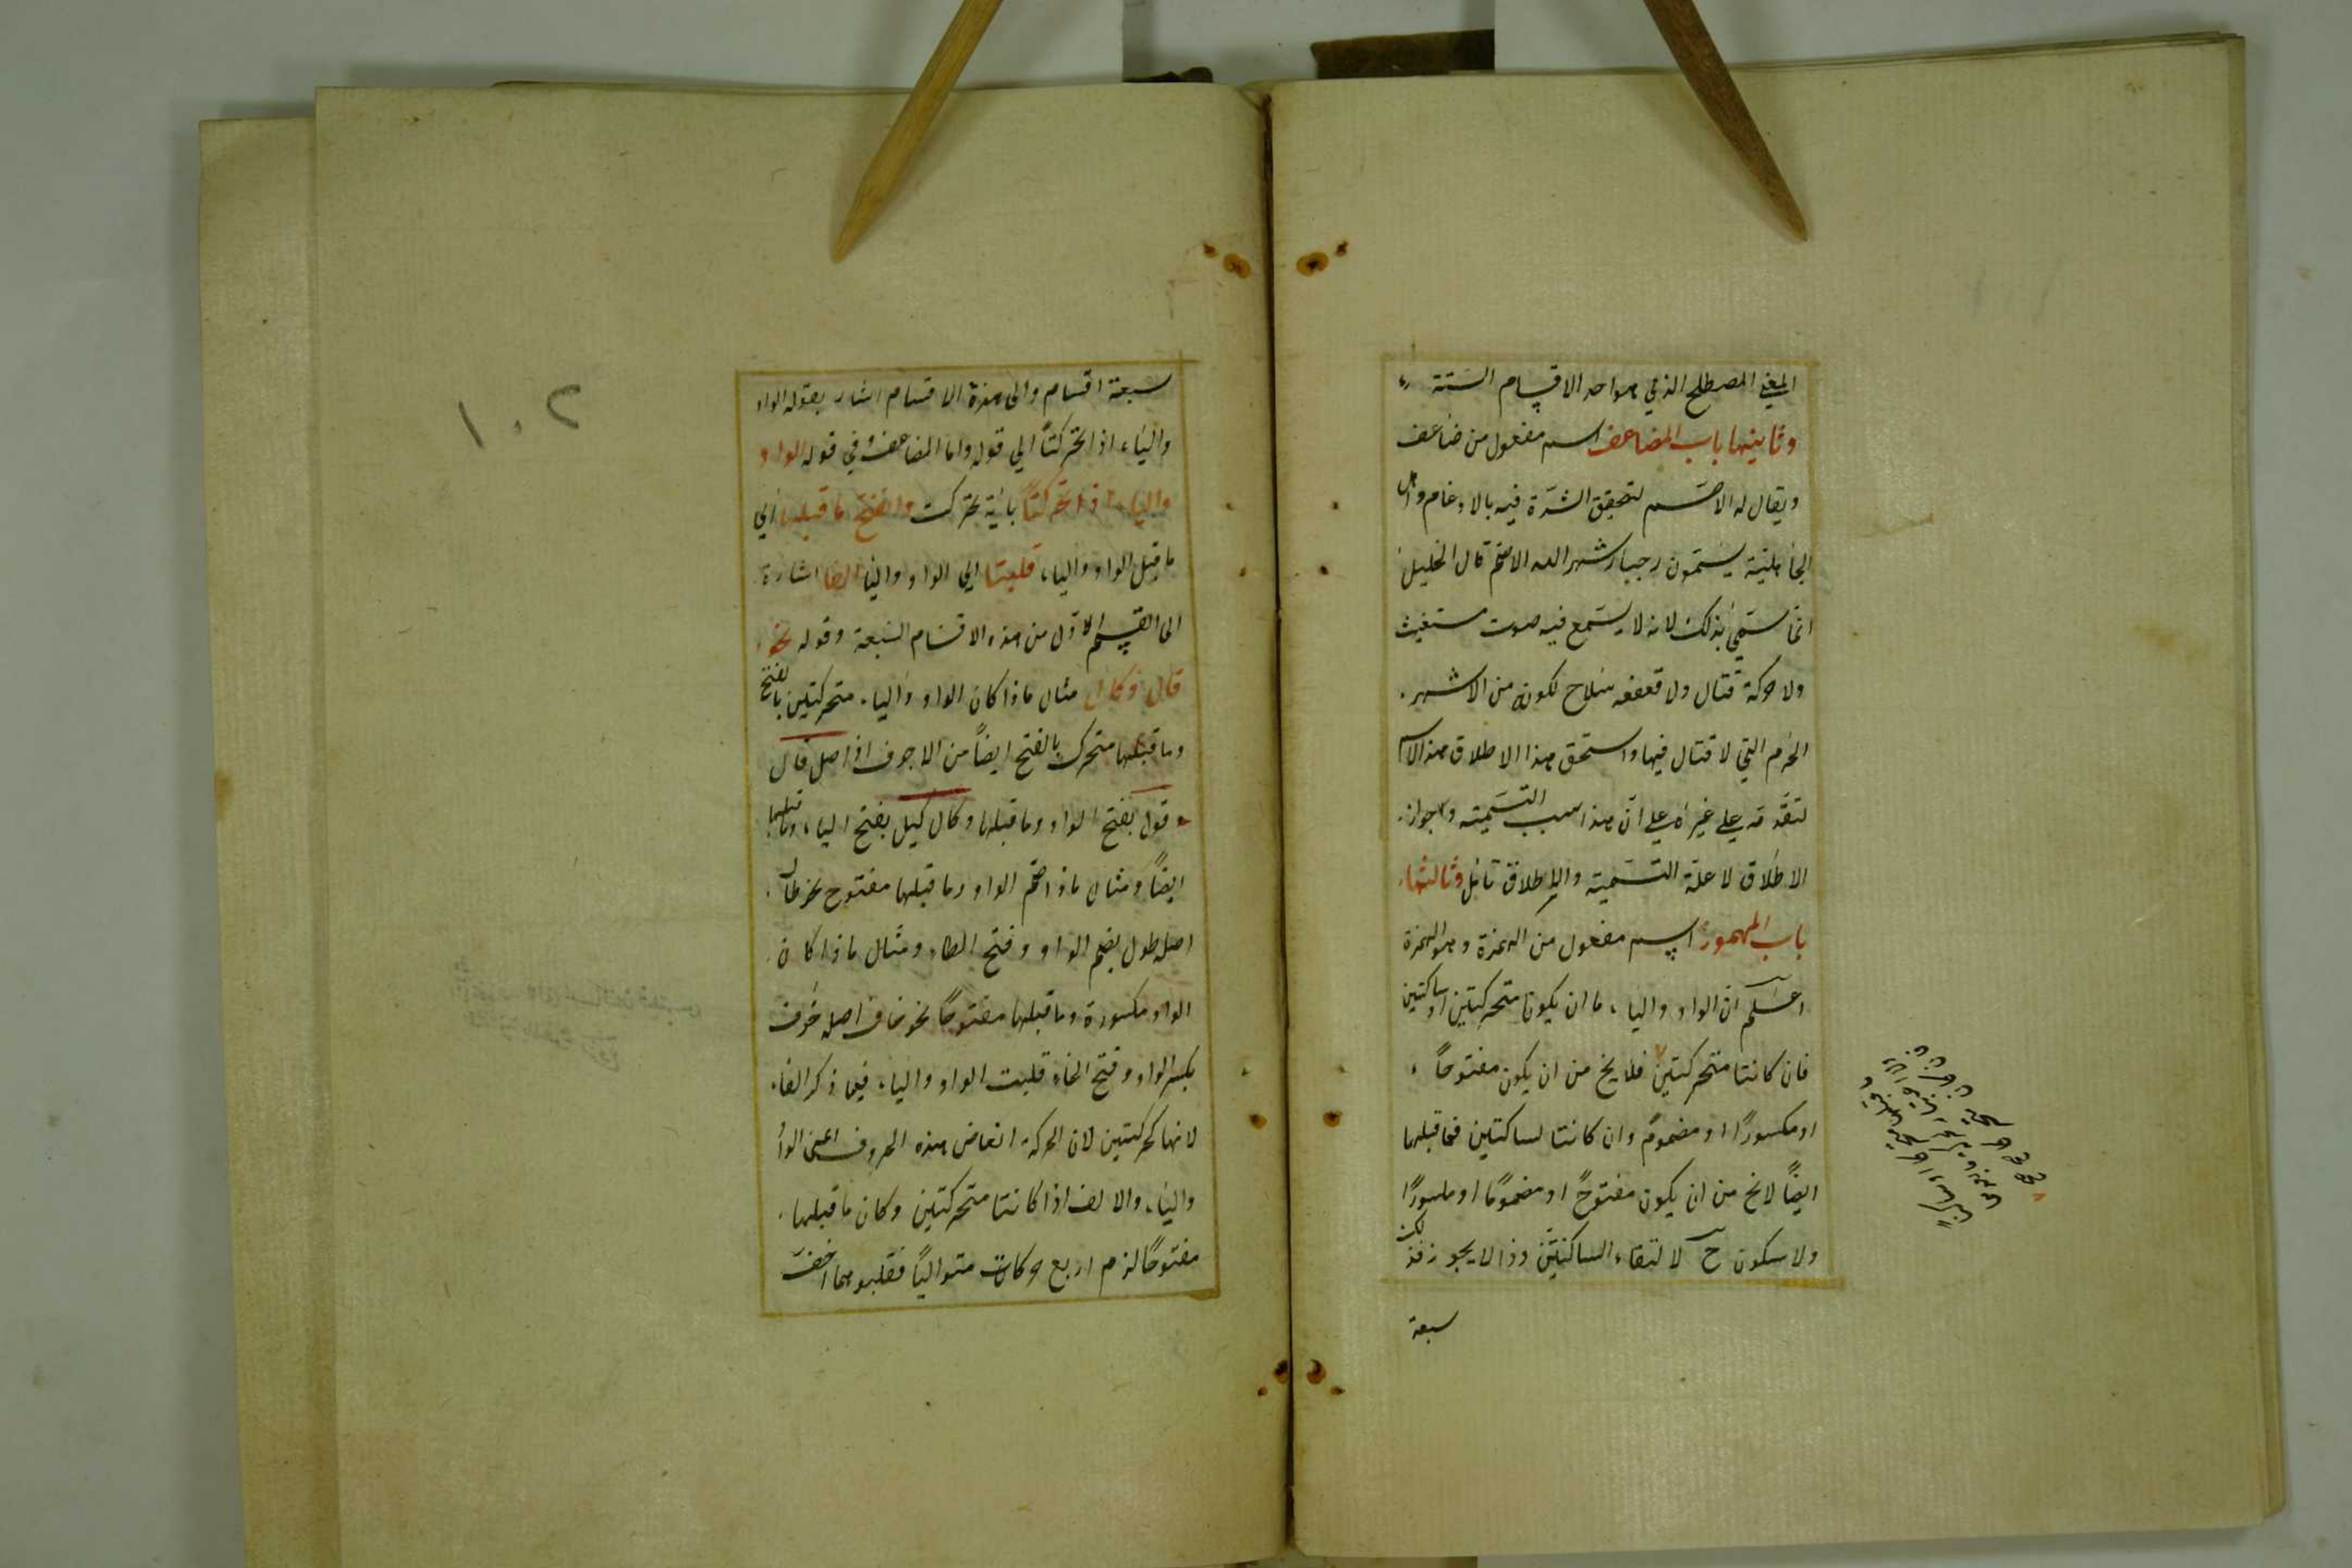 المعنى المصطلح الذي هو احد الاقسام الستة
وثانيها باب المضاعف اسم مفعول من ضاعف
ويقال له الاصم لتحقيق الشدة فيه بالادغام واهل
الجاهلية يسمون رجبا شهر الله الاصم قال الخليل
انما سمي بذلك لانه لا يسمع فيه صوت مستغيث
ولا حركة قتال ولا قعقعه سلاح لكونه من الاشهر
الحرم التي لا قتال فيها واستحق هذا الاطلاق هذا الاسم
لتقدمه علي غيره علي ان هذا سبب التسمية وجواز
الاطلاق لا علة التسمية والاطلاق تأمل وثالثها
باب المهموز اسم مفعول من الهمزة وهو الهمزة
اعلم ان الواو والياء ما ان يكونا متحركتين او ساكنتين
فان كانتا متحركتين فلا يخ من ان يكون مفتوحاً
او مكسورًا او مضموم وان كانتا ساكنتين فما قبلهما
ايضاً لا يخ من ان يكون مفتوحً او مضمومًا او مكسورًا
ولا سكون ح لالتقاء الساكنين وذا لا يجوز فذلك
سبعة
١٠٢
سبعة اقسام والى هذه الاقسام اشار بقوله الواو
والياء اذا تحركتا الي قوله واما المضاعف وفي قوله الواو
والياء اذا تحركتا باية تحركت وانفتح ما قبلهما اي
ما قبل الواو والياء قلبتا اي الواو والياء الفا اشارة
الى القسم الاول من هذه الاقسام السبعة وقوله نحو
قال وكال مثال ما اذا كان الواو والياء متحركتين بالفتح
وما قبلهما متحرك بالفتح ايضاً من الاجوف اذ اصل قال
قول بفتح الواو وما قبلها وكال كيل بفتح الياء وما قبلها
ايضاً ومثال ما اذا ضم الواو وما قبلها مفتوح نحو طال
اصله طول بضم الواو وفتح الطاء ومثال ما اذا كان
الواو مكسورة وما قبلها مفتوحًا نحو خاف اصله خوف
بكسر الواو وفتح الخاء قلبت الواو والياء فيما ذكر الفا
لانها كحركتين لان الحركة ابعاض هذه الحروف اعني الواو
والياء والالف اذا كانتا متحركتين وكان ما قبلهما
مفتوحًا لزم اربع حركات متوالياً فقلبوهما اخف